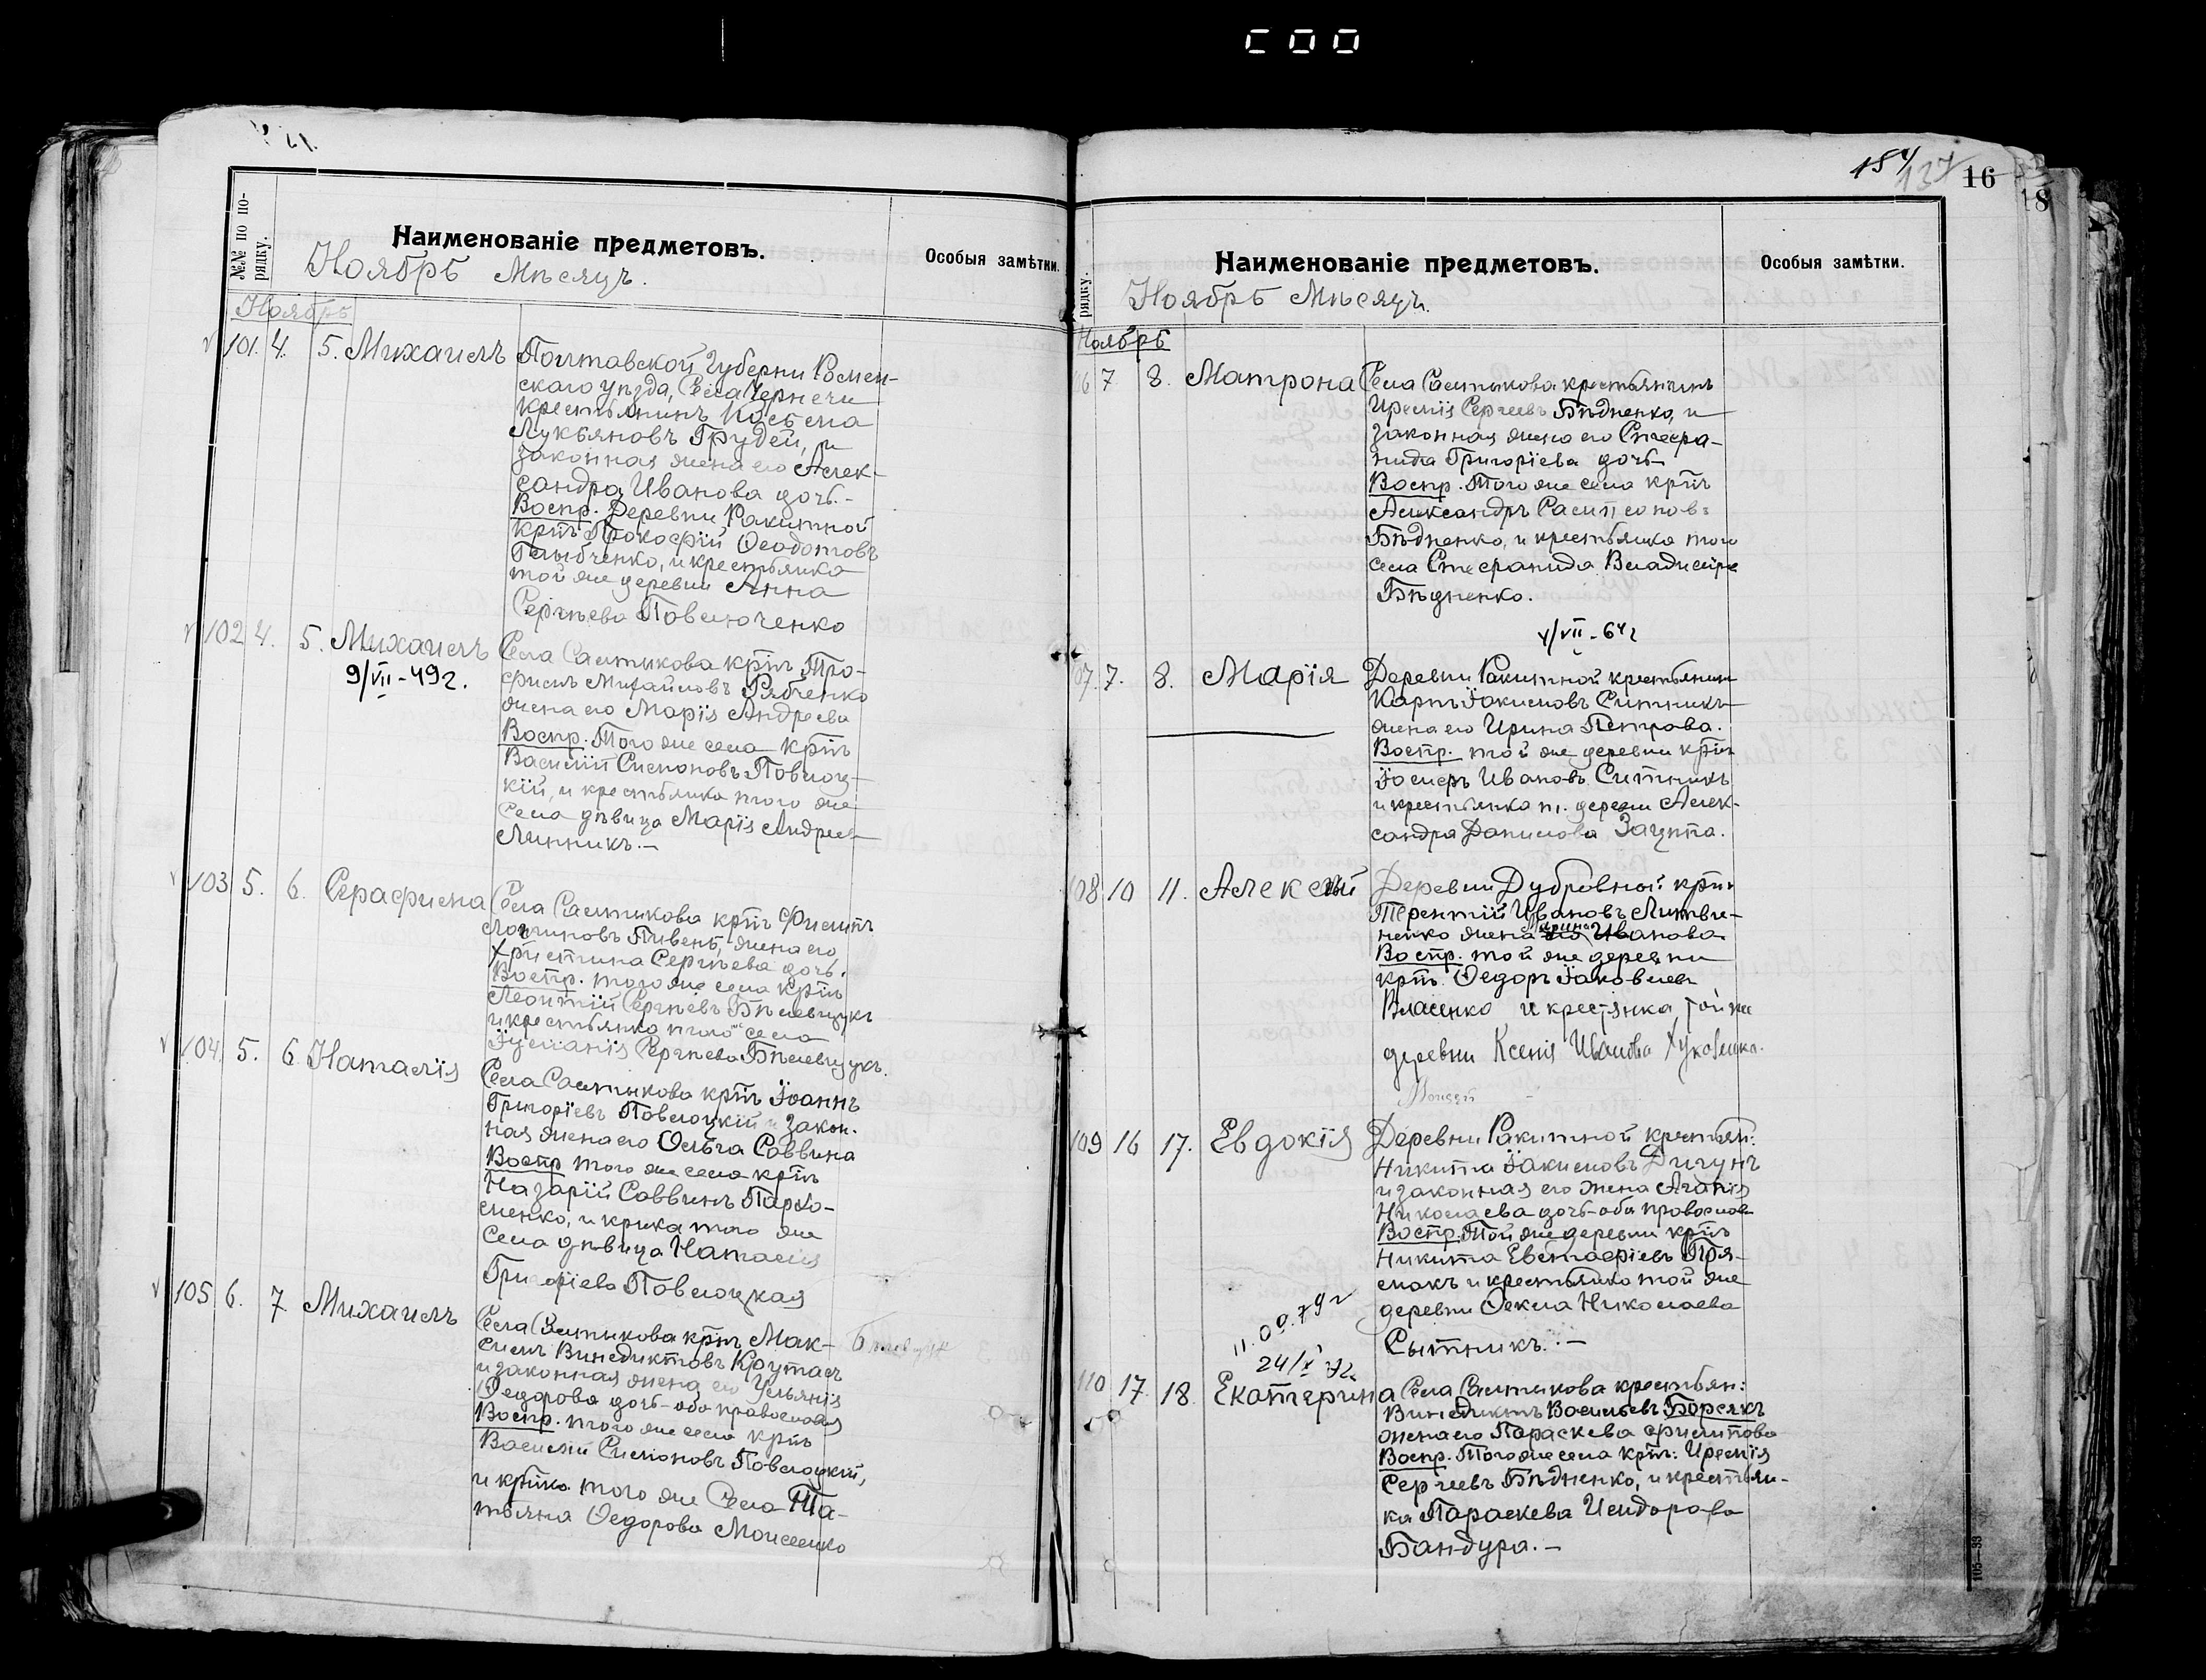 №№ по по-
рядку.
Наименованіе предметовъ.
Особыя замѣтки.
Ноябрь Мѣсяцъ.
Ноябрь
101. 4. 5. Михаилъ
Полтавской Губерни Ромен-
скаго уѣзда, Села Чернечи
крестьянинъ Косьма
Лукьяновъ Грудей, и
законная жена его Алек-
сандра Иванова дочь.-
Воспр. Деревни Ракитной
крт҃ъ Прокофій Ѳеодотовъ
и крестьянка
той же деревни Анна
Сергѣева Павлюченко
102 4. 5. Михаилъ
9/VII-49г.
Села Салтыкова крт҃ъ Тро-
фимъ Михайловъ Рябченко
жена его Марія Андреева
Воспр. Того же села крт҃ъ
Василій Симоновъ Повлоц-
кій, и крестьянка того же
села дѣвица Марія Андреева
Линникъ.-
103 5. 6. Серафима
Села Салтыкова крт҃ъ Филипъ
Логиновъ Пивень, жена его
Христина Сергѣева дочь.
Воспр. того же села крт҃ъ
Леонтій Сергѣевъ Бѣлевцукъ
и крестьянка того села
Іуліанія Сергѣева Бѣлевцукъ.
104 5. 6 Наталія
Села Салтыкова крт҃ъ Іоаннъ
Григоріевъ Повлоцкій и закон.
ная жена его Ольга Саввина
Воспр того же села крт҃ъ
Назарій Саввинъ Пархо-
менко, и крт҃ка того же
Села дѣвица Наталія
Григоріева Повлоцкая
105 6. 7 Михаилъ
Села Салтыкова крт҃ъ Мак-
симъ Винедиктовъ Крутась
и законная жена его Ульянія
Ѳедорова дочь- оба православныя
Воспр. того же села крт҃ъ
Василій Симоновъ Повлоцкій,
и крт҃ка того же Села Та-
тьяна Ѳедорова Моисеенко
184
137
16
18
рядку.
Наименованіе предметовъ.
Особыя замѣтки.
Ноябрь Мѣсяцъ.
Ноябрь
06 7 8. Матрона
Села Салтыкова крестьянинъ
Иремія Сергеевъ Бѣдненко, и
законная жена его Стефа-
нида Григоріева дочь
Воспр. Того же села крт҃ъ
Александръ Самсонов:
Бѣдненко, и крестьянка того
села Стефанида Владимірова
Бѣдненко.
4/VII-64г
07. 7. 8. Марія
Деревни Ракитной крестьянин
Карпъ Іакимовъ Ситникъ
жена его Ирина Петрова.
Воспр. той же деревни крт҃ъ
Іосифъ Ивановъ Ситникъ
и крестьянка т. деревни Алек-
сандра Данилова Зацепа.
108 10 11. Алексѣй
Деревни Дубровной крт҃ъ
Терентій Ивановъ Литви-
ненко жена его Марина Иванова
Воспр. той же деревни
крт҃ъ Ѳедоръ Іаковлевъ
Власенко и крестянка той же
деревни Ксенія Иванова
109 16 17. Евдокія
Деревни Ракитной крестьян:
Никита Іакимовъ Дигунъ
и законная его жена Агапія
Николаева дочь- оба православ
Воспр. Той же деревни крт҃ъ
Никита Евстафіевъ Пря-
макъ и крестьянка той же
деревни Ѳекла Николаева
Сытникъ.-
24/X
110 17. 18. Екатерина
Села Салтыкова крестьян:
Винедиктъ Васильевъ Борсякъ
жена его Параскева Филипова
Воспр. Того же села крт҃ъ: Иремія
Сергеевъ Бѣдненко, и крестьян-
ка Параскева Исидорова
Бандура.-
105—33